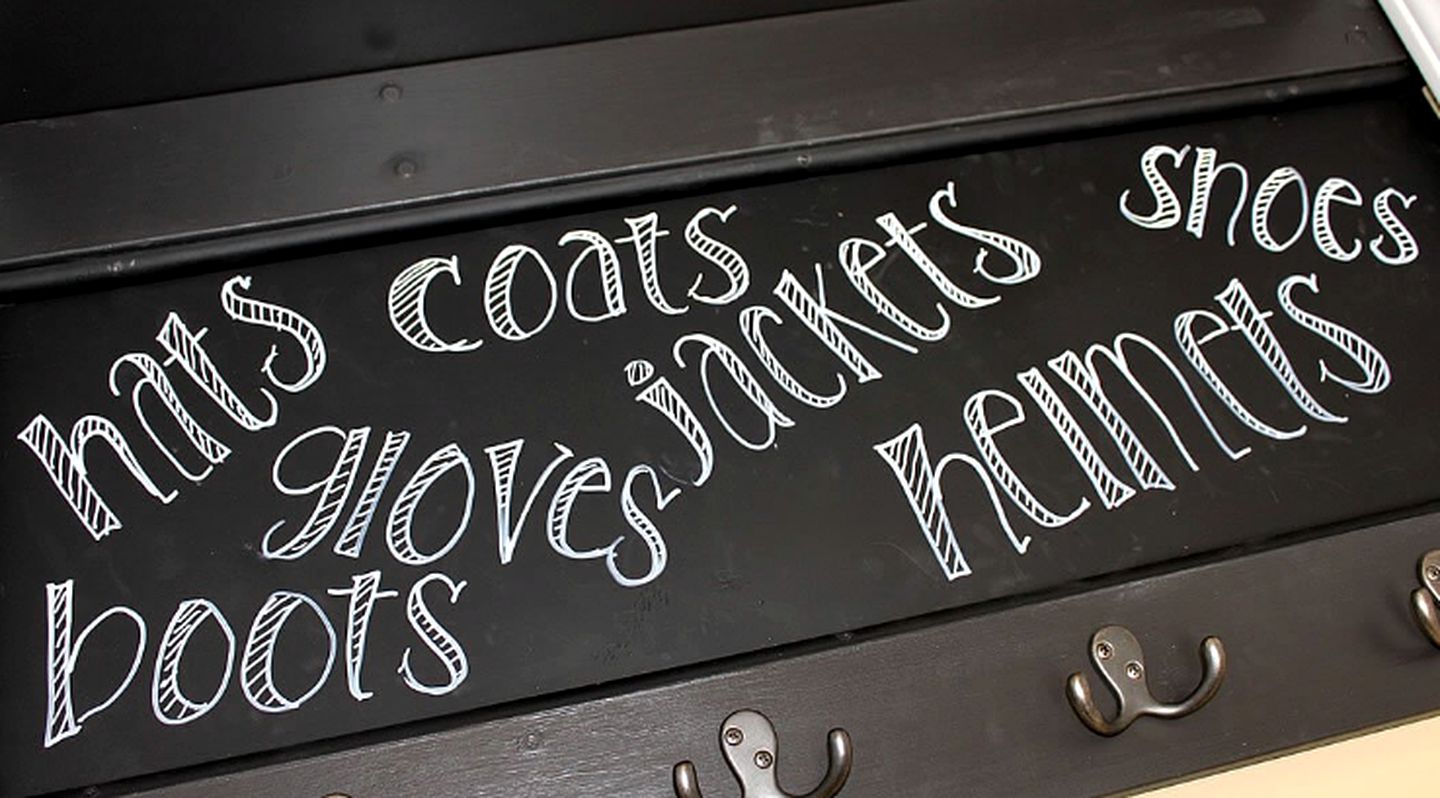 hats coats jackets shoes
gloves helmets
boots